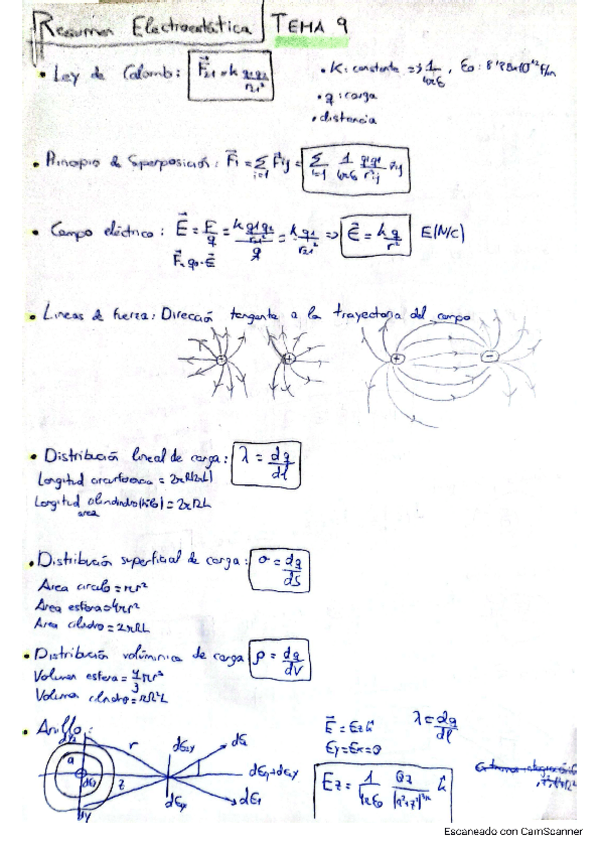 Resumen Electroestática TEMA 9
• Ley de Colomb: F⃗₂₁ = k q₁q₂/r₂₁² • K: constante => 1/4πε₀, ε₀: 8'85x10⁻¹² F/m
• q: carga
• distancia
• Principio de Superposición: F⃗i = Σ F⃗ij = Σ 1/4πε₀ qiqj/r²ij r⃗ij
• Campo eléctrico: E⃗ = F/q = k q₁q₂/r₂₁² / q = k q₁/r₂₁² => E⃗ = k q/r² E(N/C)
F⃗ = q₀·E⃗
• Lineas de fuerza: Dirección tangente a la trayectoria del campo
+ + + -
• Distribución lineal de carga: λ = dq/dl
Longitud circunferencia = 2πR
Longitud cilindro = 2πRL
area
• Distribución superficial de carga: σ = dq/dS
Area circulo = πr²
Area esfera = 4πr²
Area cilindro = 2πRL
• Distribución volúminica de carga ρ = dq/dV
Volumen esfera = 4/3 πr³
Volumen cilindro = πR²L
• Anillo: E⃗ = Ez k⃗ λ = dq/dl
Ey = Ex = 0
a r z
Ez = 1/4πε₀ Qz/(a²+z²)^3/2 k⃗
Escaneado con CamScanner